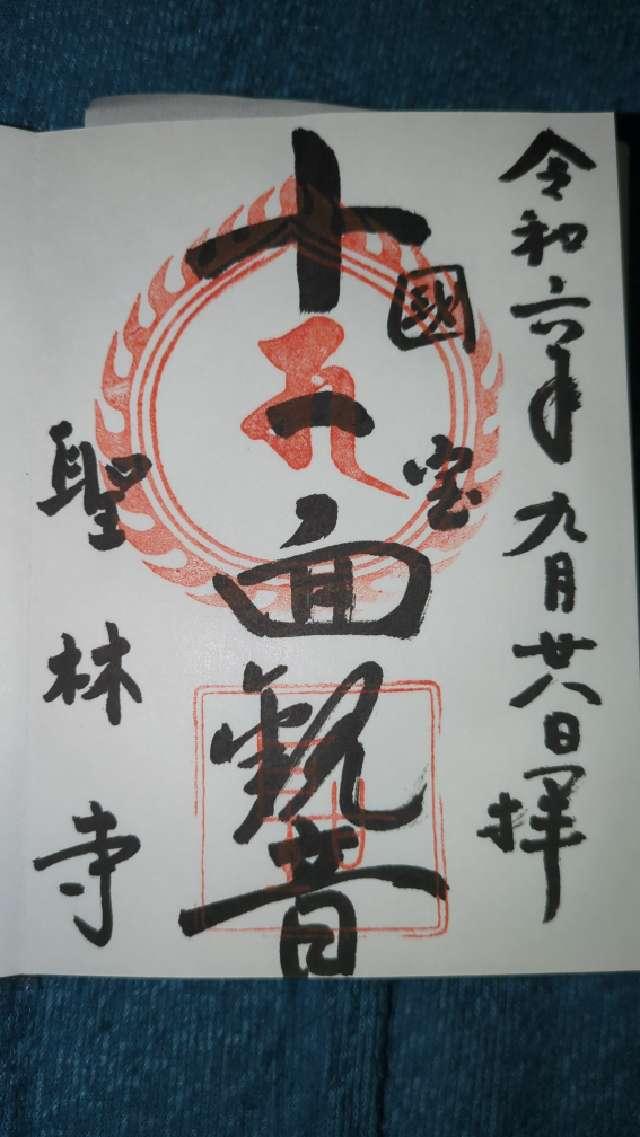 令和六年九月廿八日拝
國宝
十一面観音
聖林寺